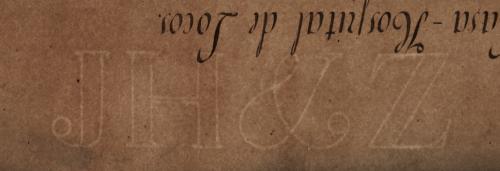 Casa-Hospital de Locos.
JH&Z